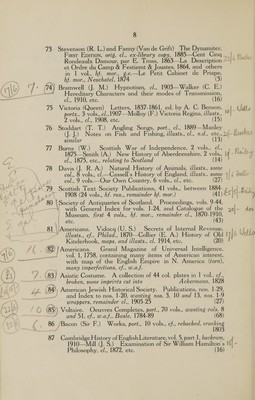 8
73 Stevenson (R. L.) and Fanny (Van de Grift) The Dynamiter,
First Edition, orig. cl., ex-library copy, 1885—Cent Cinq
Rondeaulx Damour, par E. Tross, 1863—La Description
et Ordre du Camp & Festiemt & Joustes, 1864, and others
in 1 vol., hf. mor., g.e.—Le Petit Cabinet de Priape,
hf. mor., Neuchatel, 1874 (5)
74 Bramwell (J. M.) Hypnotism, cl., 1903—Walker (C. E.)
Hereditary Characters and their modes of Transmission,
cl., 1910, etc. (16)
75 Victoria (Queen) Letters, 1837-1861, ed. by A. C. Benson,
ports., 3 vols., cl., 1907—Molloy (F.) Victoria Regina, illusts.,
2 vols., cl., 1908, etc. (13)
76 Stoddart (T. T.) Angling Songs, port., cl., 1889—Manley
(J. J.) Notes on Fish and Fishing, illusts., cl., n.d., etc.,
similar (13)
77 Burns (W.) Scottish War of Independence, 2 vols., cl.,
1875—Smith (A.) New History of Aberdeenshire, 2 vols.,
cl., 1875, etc., relating to Scotland (14)
78 Davis (J. R. A.) Natural History of Animals, illusts., some
col., 8 vols., cl.—Cassell's History of England, illusts., some
col., 9 vols.—Our Own Country, 6 vols., cl., etc. (27)
79 Scottish Text Society Publications, 41 vols., between 1884-
1908 (24 vols., hf. rox., remainder hf. mor.) (41)
80 Society of Antiquaries of Scotland. Proceedings, vols. 9-44,
with General Index for vols. 1-24, and Catalogue of the
Museum, first 4 vols., hf. mor., remainder cl., 1870-1910,
etc. (43)
81 Americana. Vidocq (U.S.) Secrets of Internal Revenue,
illusts., cl., Philad., 1870—Cellier (E. A.) History of Old
Kinderhook, maps, and illusts., cl. 1914, etc. (20)
82 Americana. Grand Magazine of Universal Intelligence,
vol. 1, 1758, containing many items of American interest,
with map of the English Empire in N. America (torn),
many imperfections, cf., w.a.f.
83 Asiatic Costume. A collection of 44 col. plates in 1 vol., cf.,
broken, some imprints cut into Ackermann, 1828
84 American Jewish Historical Society. Publications, nos. 1-29,
and Index to nos. 1-20, wanting nos. 3, 10 and 13, nos. 1-9
wrappers, remainder cl., 1905-25 (27)
85 Voltaire. Oeuvres Completes, port., 70 vols., wanting vols. 8
and 51, cf., w.a.f., Basle, 1784-89 (68)
86 Bacon (Sir F.) Works, port., 10 vols., cf., rebacked, cracking
1803
87 Cambridge History of English Literature, vol. 5, part 1, buckram,
1910—Mill (J. S.) Examination of Sir William Hamilton's
Philosophy, cl., 1872, etc. (16)